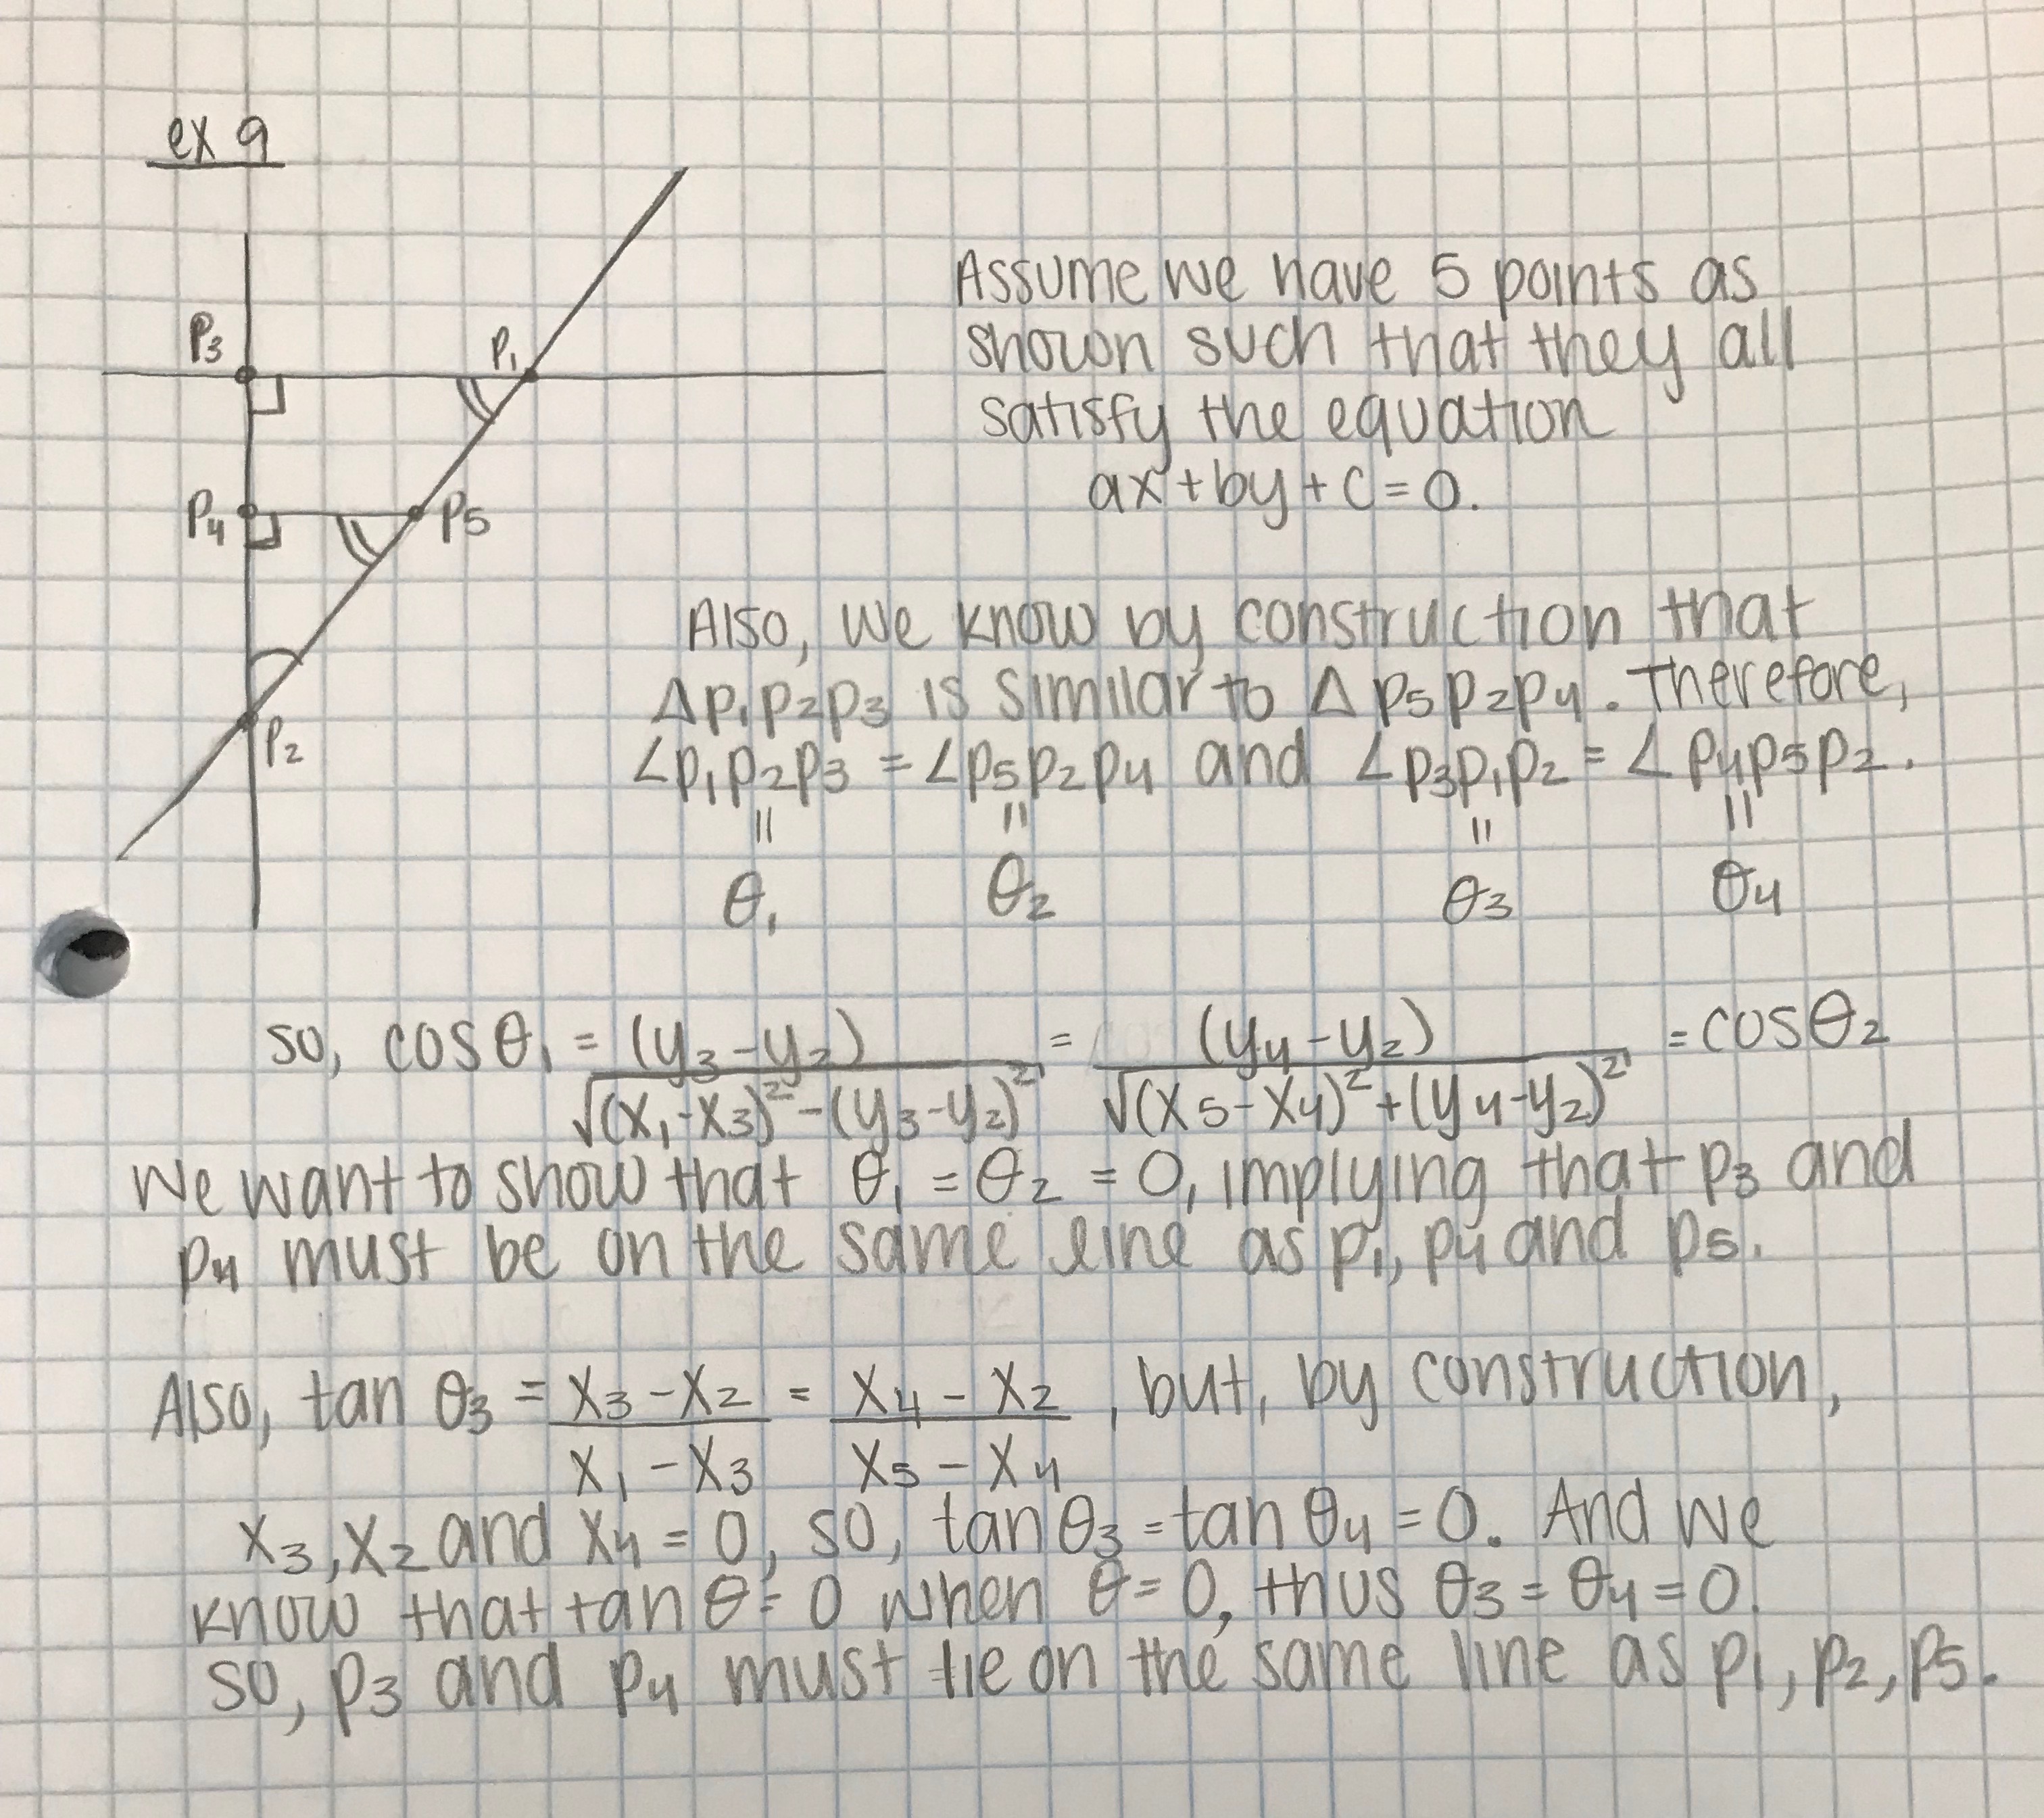 ex 9
P3
P1
P4
P5
P2
Assume we have 5 points as
shown such that they all
satisfy the equation
ax+by+c=0.
Also, we know by construction that
Δp1p2p3 is similar to Δ p5p2p4. Therefore,
∠p1p2p3 = ∠p5p2p4 and ∠p3p1p2 = ∠p4p5p2.
= = = =
θ1 θ2 θ3 θ4
so, cosθ1 = (y3-y2) / √(x1-x3)²-(y3-y2)² = (y4-y2) / √(x5-x4)²+(y4-y2)² = cosθ2
we want to show that θ1 = θ2 = 0, implying that p3 and
p4 must be on the same line as p1, p4 and p5.
Also, tan θ3 = x3-x2 / x1-x3 = x4-x2 / x5-x4, but, by construction,
x3, x2 and x4 = 0, so, tanθ3 = tanθ4 = 0. And we
know that tan θ = 0 when θ = 0, thus θ3 = θ4 = 0.
so, p3 and p4 must lie on the same line as p1, p2, p5.